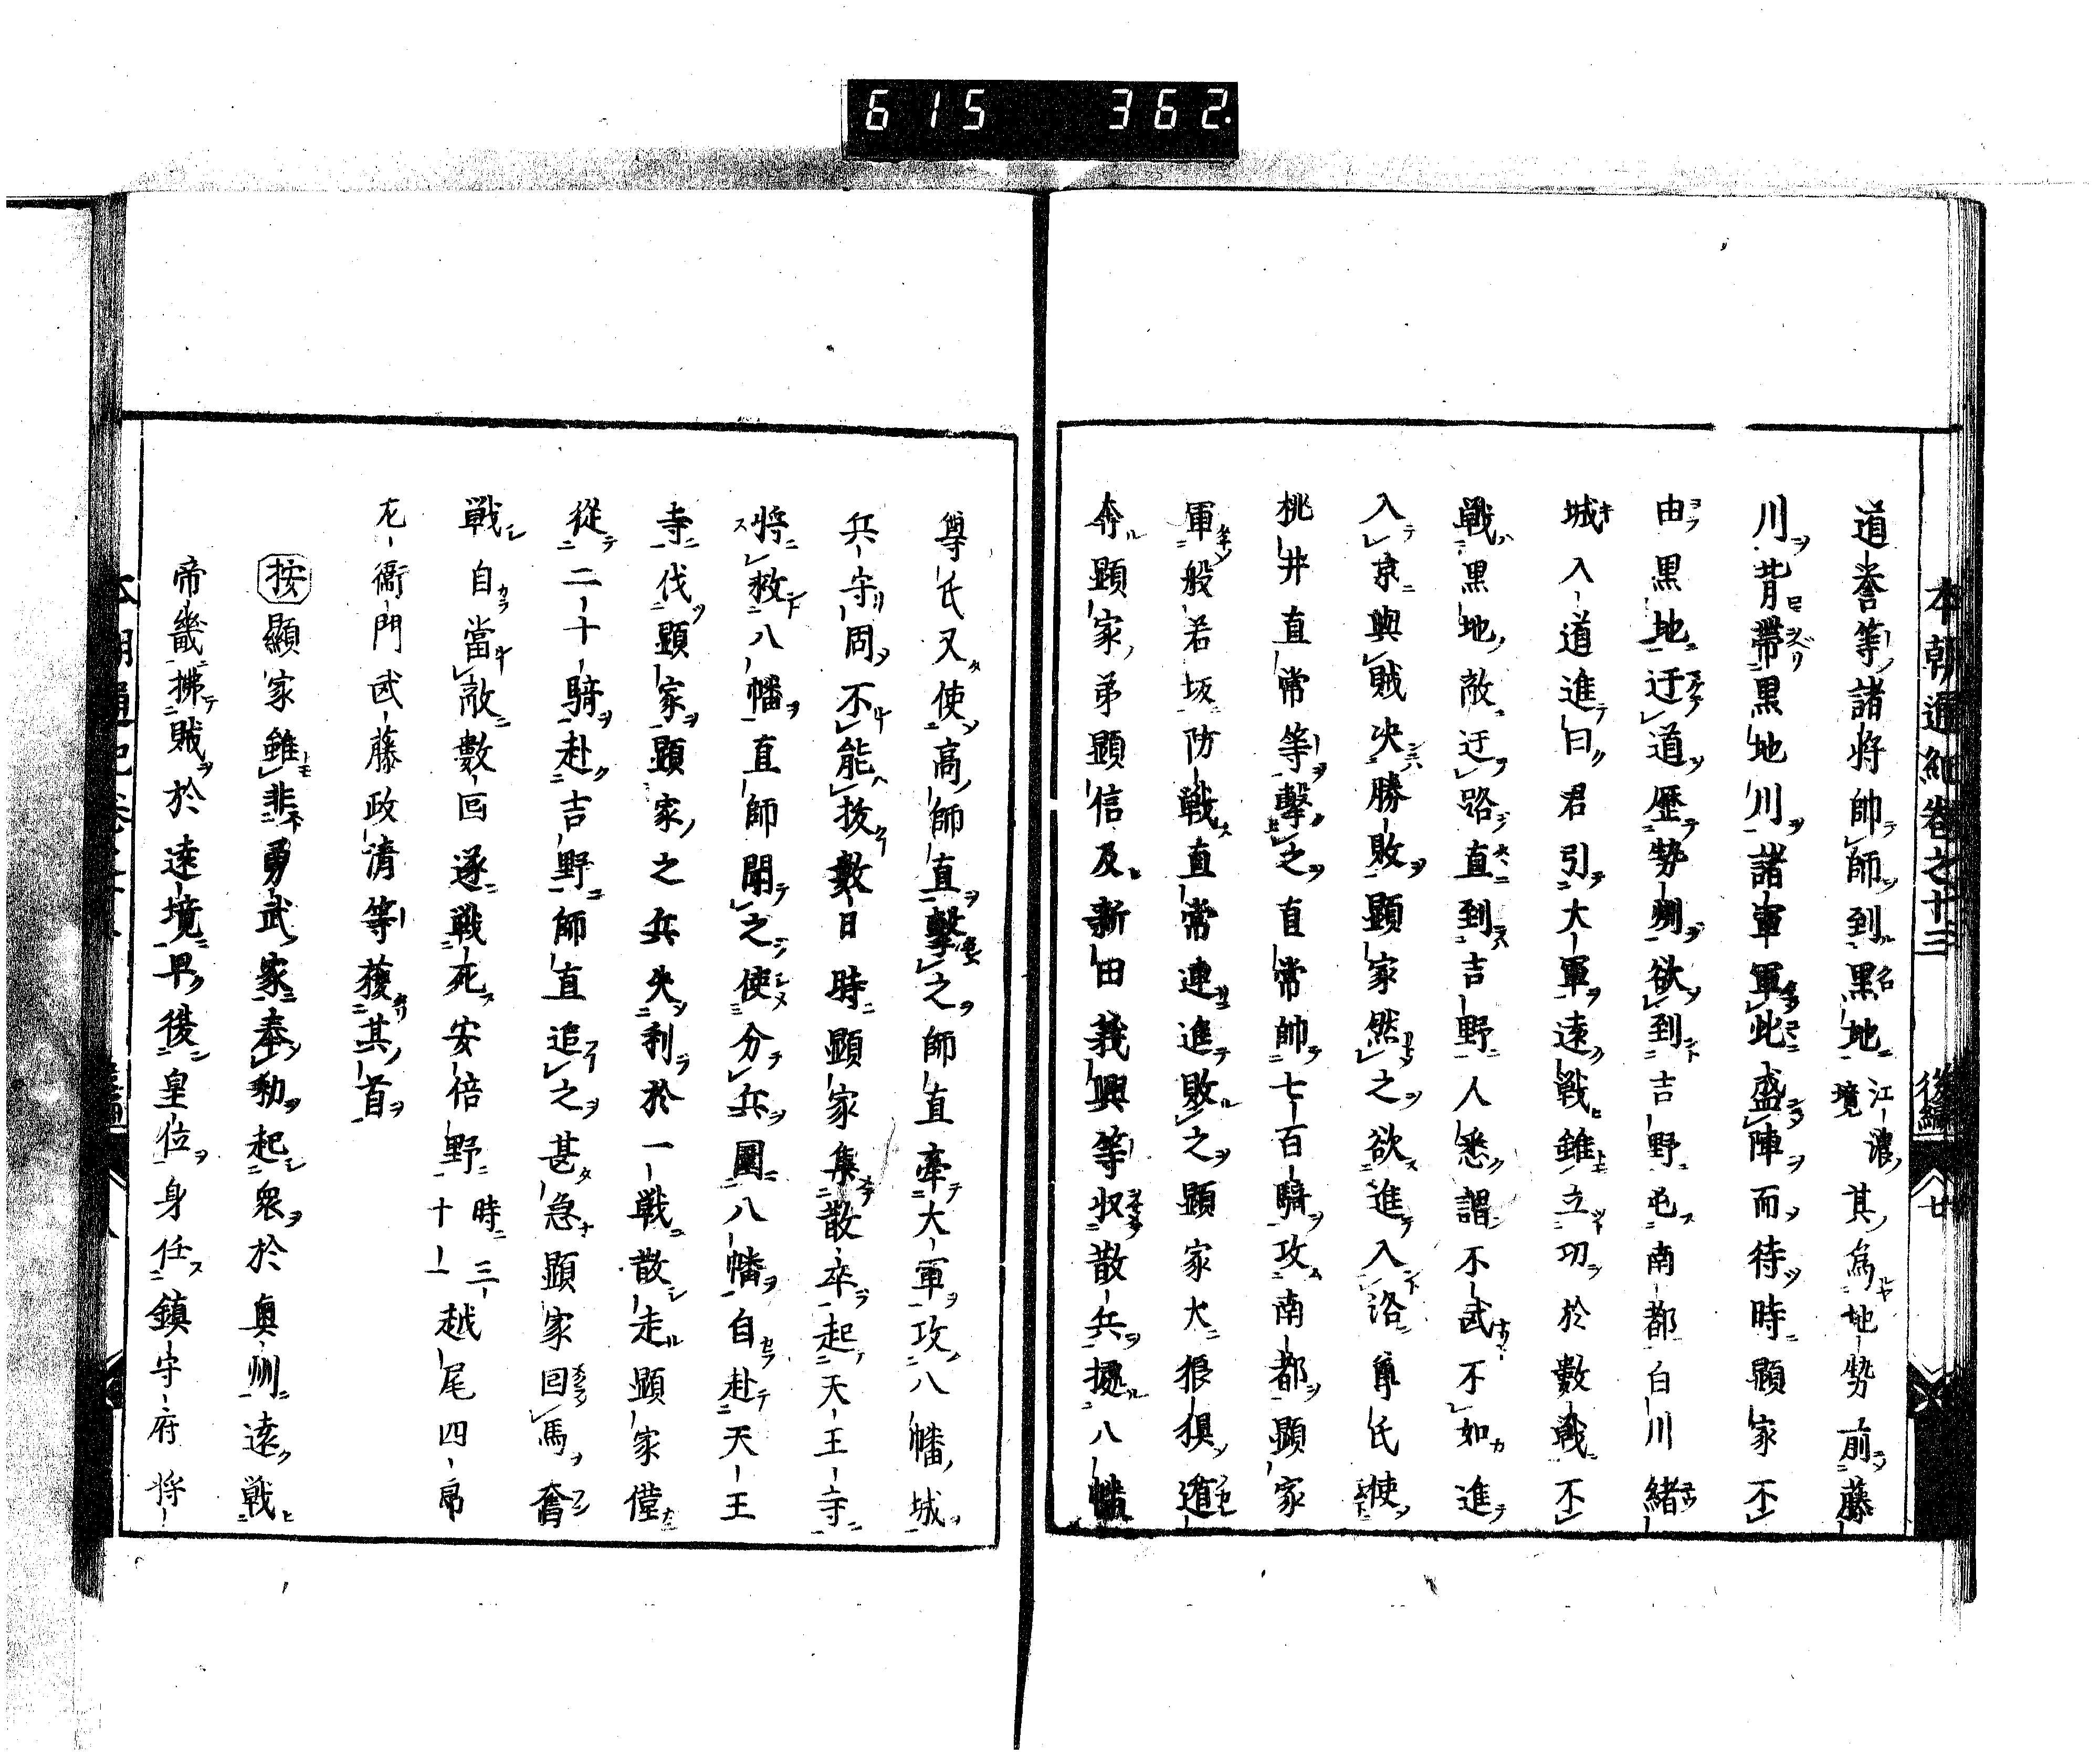 615 362.
本朝通紀卷之廿三 後編 廿
道誉等諸將帥師到黒地江濃境其為地勢前藤
川背帶黒地川諸軍軍此盛陣而待時顕家不
由黒地迂道歴勢州欲到吉野屯南都白川結
城入道進曰君引大軍遠戦雖立功於數戦不
戦黒地敵迂路直到吉野人悉謂不武不如進
入京與賊决勝敗顕家然之欲進入洛尊氏使
桃井直常等擊之直常帥七百騎攻南都顕家
軍般若坂防戦直常連進敗之顕家大狼狽遁
奔顕家弟顕信及新田義興等収散兵據八幡
尊氏又使高師直擊之師直牽大軍攻八幡城
兵守固不能抜數日時顕家集散卒起天王寺
將救八幡直師聞之使分兵圍八幡自赴天王
寺伐顕家顕家之兵失利於一戦散走顕家僅
從二十騎赴吉野師直追之甚急顕家回馬奮
戦自當敵數回遂戦死安倍野時三十一越尾四郎
左衞門武藤政清等獲其首
按顯家雖非勇武家奉勅起衆於奥州遠戦
帝畿拂賊於遠境早復皇位身任鎮守府將